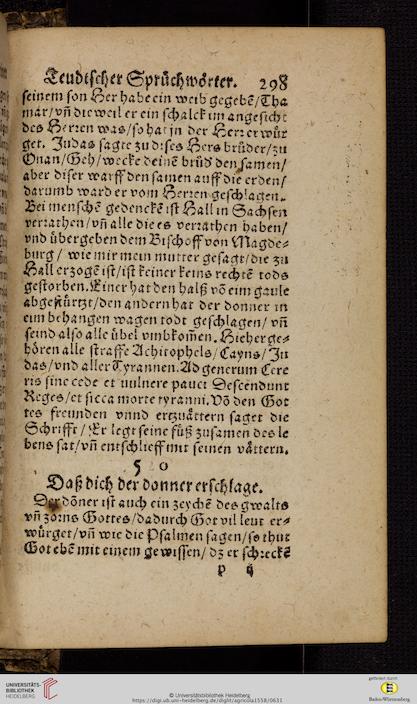 Teudtscher Sprüchwörter. 298
seinem son Her habe ein weib gegebē/Tha
mar/vñ die weil er ein schalck im angesicht
des Herren was/so hat jn der Herr erwür
get. Judas sagte zu dises Hers brüder/zu
Onan/Geh/wecke deinē brůd den samen/
aber diser warff den samen auff die erden/
darumb ward er vom Herren geschlagen.
Bei menschē gedenckē ist Hall in Sachsen
verrathen/vñ alle die es verrathen haben/
vnd übergeben dem Bischoff von Magde-
burg/wie mir mein mutter gesagt/die zů
Hall erzogē ist/ist keiner keins rechtē tods
gestorben. Einer hat den halß vō eim gaule
abgestürtzt/den andern hat der donner in
eim behangen wagen todt geschlagen/vñ
seind also alle übel vmbkom̄en. Hieher ge-
hören alle straffe Achitophels/Cayns/Ju
das/vnd aller Tyrannen. Ad generum Cere
ris sine cede et vulnere pauci Descendunt
Reges/et sicca morte tyranni. Vō den Got
tes freunden vnnd ertzuättern saget die
Schrifft/Er legt seine füß zusamen des le
bens sat/vñ entschlieff mit seinen vättern.
5 0
Daß dich der donner erschlage.
Der dōner ist auch ein zeychē des gwalts
vñ zorns Gottes/dadurch Got vil leut er-
würget/vñ wie die Psalmen sagen/so thut
Got ebē mit einem gewissen/dz er schreckē
p ij
UNIVERSITÄTS-
BIBLIOTHEK
HEIDELBERG
© Universitätsbibliothek Heidelberg
https://digi.ub.uni-heidelberg.de/diglit/agricola1558/0631
gefördert durch
Baden-Württemberg